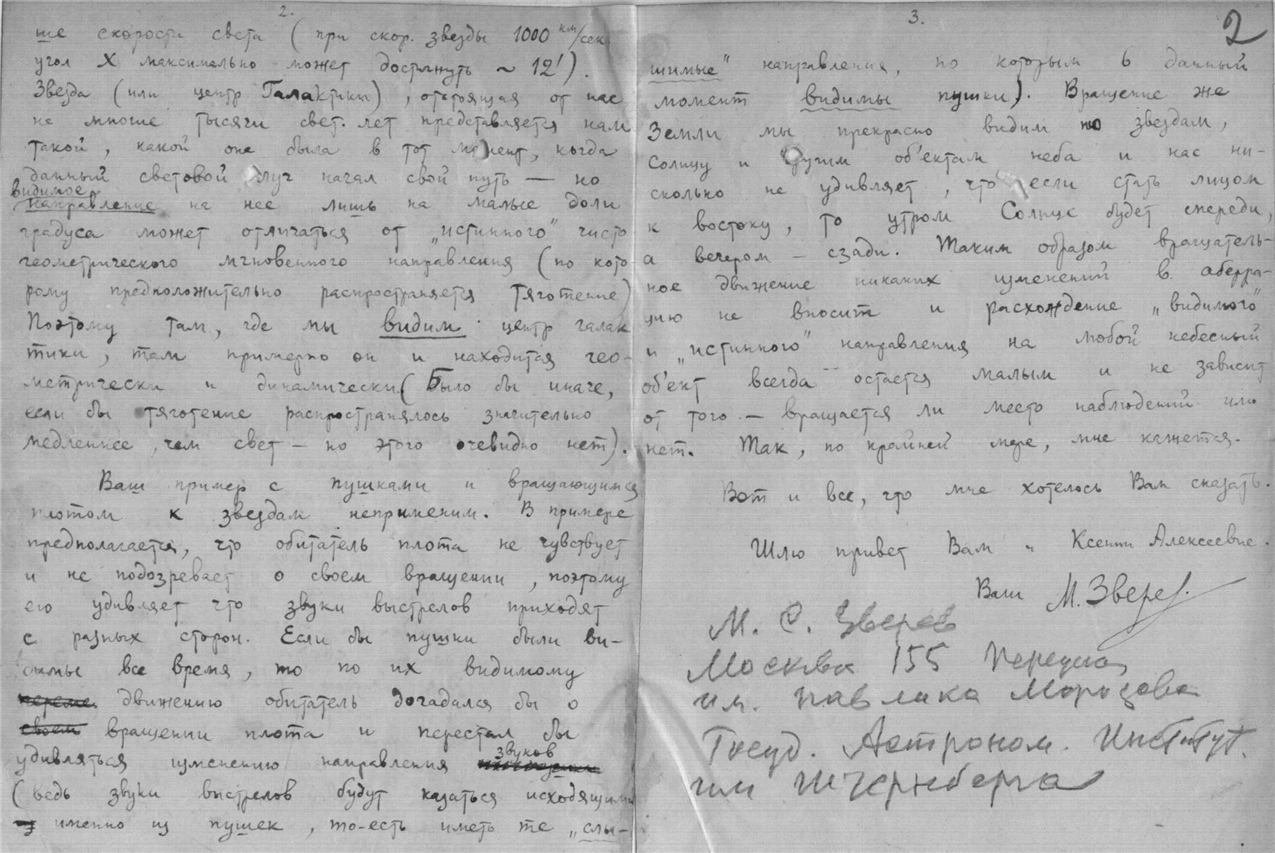 2.
ше скорости света (при скор. звезды 1000 км/сек
угол X максимально может достигнуть ~ 12').
Звезда (или центр Галактики), отстоящая от нас
на многие тысячи свет. лет представляется нам
такой, какой она была в тот момент, когда
данный световой луч начал свой путь — но
видимое
направление на нее лишь на малые доли
градуса может отличаться от „истинного" чисто
геометрического мгновенного направления (по кото-
рому предположительно распространяется тяготение)
Поэтому там, где мы видим центр галак
тики, там примерно он и находится гео-
метрически и динамически (Было бы иначе,
если бы тяготение распространялось значительно
медленнее, чем свет — но этого очевидно нет).
Ваш пример с пушками и вращающимся
плотом к звездам неприменим. В примере
предполагается, что обитатель плота не чувствует
и не подозревает о своем вращении, поэтому
его удивляет что звуки выстрелов приходят
с разных сторон. Если бы пушки были ви-
димы все время, то по их видимому
движению обитатель догадался бы о
своем вращении плота и перестал бы
звуков
удивляться изменению направления
(ведь звуки выстрелов будут казаться исходящими
именно из пушек, то-есть иметь те „слы-
3.
2
шимые" направления, по которым в данный
момент видимы пушки). Вращение же
Земли мы прекрасно видим по звездам,
Солнцу и другим об'ектам неба и нас ни-
сколько не удивляет, что если стать лицом
к востоку, то утром Солнце будет спереди,
а вечером — сзади. Таким образом вращатель-
ное движение никаких изменений в аберра-
цию не вносит и расхождение „видимого"
и „истинного" направления на любой небесный
об'ект всегда остается малым и не зависит
от того — вращается ли место наблюдений или
нет. Так, по крайней мере, мне кажется.
Вот и все, что мне хотелось Вам сказать.
Шлю привет Вам и Ксении Алексеевне.
Ваш М. Зверев.
М. С. Зверев
Москва 155 Переулок
им. Павлика Морозова
Госуд. Астроном. Институт
им Штернберга